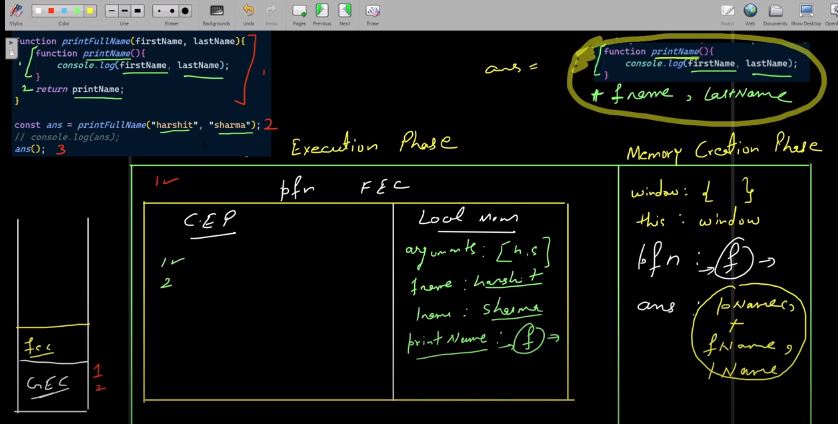 Stylus
Colors
Line
Eraser
Backgrounds
Undo
Pages
Previous
Next
Eraser
Board
Web
Documents
Show Desktop
function printFullName(firstName, lastName){
function printName(){
console.log(firstName, lastName);
}
2 return printName;
}
const ans = printFullName("harshit", "sharma"); 2
// console.log(ans);
ans(); 3
ans =
function printName(){
console.log(firstName, lastName);
}
+ fname, lastName
Execution Phase
Memory Creation Phase
1
pfn FEC
C.E.P
Local Mem
1
2
arguments: [h,s]
fname: harshit
lname: sharma
printName: f
window: { }
this: window
pfn: f
ans: pName,
+
fName,
lName
fec
GEC
1
2